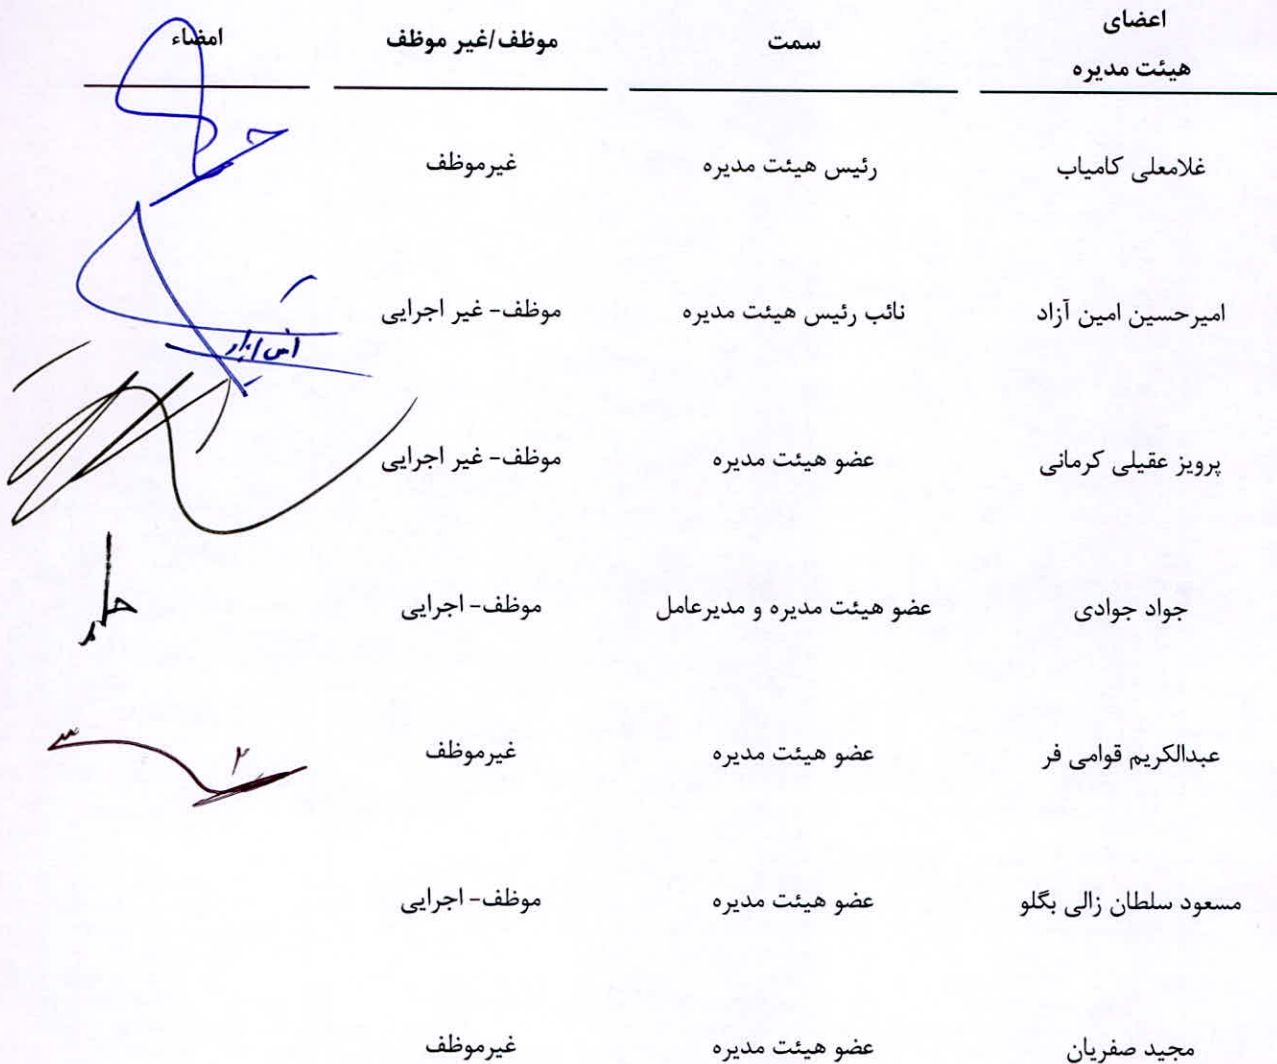 اعضای
هیئت مدیره
سمت
موظف/غیر موظف
امضاء
غلامعلی کامیاب
رئیس هیئت مدیره
غیرموظف
امیرحسین امین آزاد
نائب رئیس هیئت مدیره
موظف- غیر اجرایی
پرویز عقیلی کرمانی
عضو هیئت مدیره
موظف- غیر اجرایی
جواد جوادی
عضو هیئت مدیره و مدیرعامل
موظف- اجرایی
عبدالکریم قوامی فر
عضو هیئت مدیره
غیرموظف
مسعود سلطان زالی بگلو
عضو هیئت مدیره
موظف- اجرایی
مجید صفریان
عضو هیئت مدیره
غیرموظف